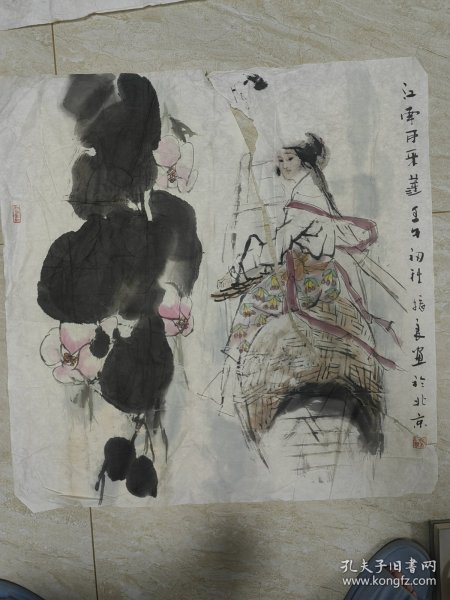 江南可采莲 壬午初秋 振良画于北京
孔夫子旧书网
www.kongfz.com